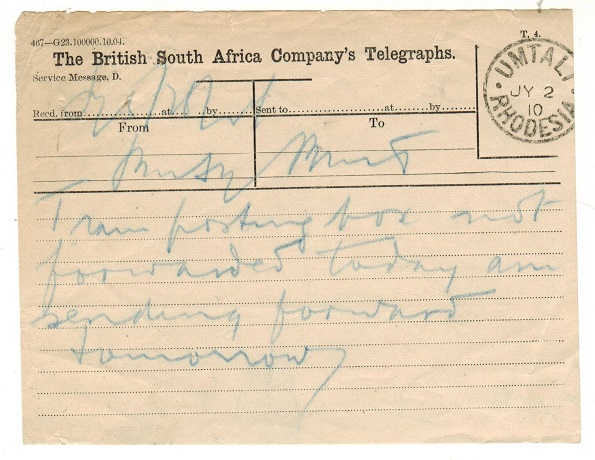 467—G23.100000.10.04.
T. 4.
The British South Africa Company's Telegraphs.
Service Message, D.
UMTALI
JY 2
10
RHODESIA
Recd. from at by Sent to at by
From To
Tram posting box not
forwarded today am
sending forward
tomorrow